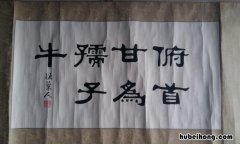 俯首
甘為
孺子
牛
www.hubeihong.com